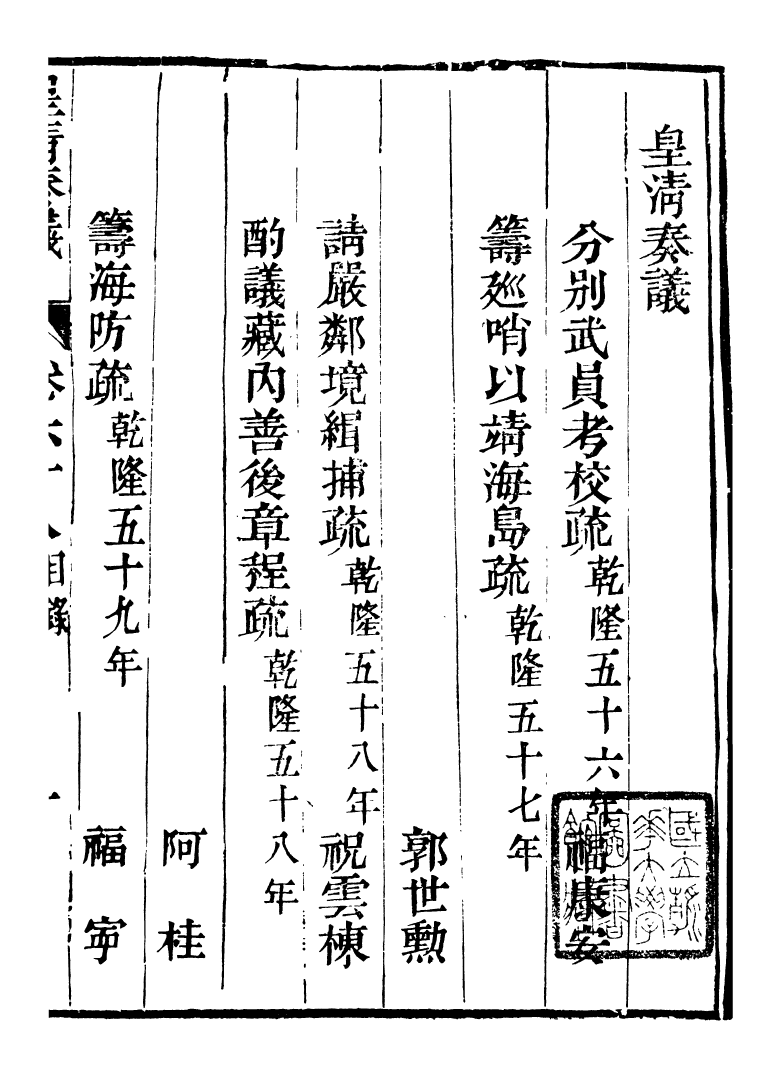 皇清奏議
分別武員考校疏乾隆五十六年 福康安
籌廵哨以靖海島疏乾隆五十七年
郭世勳
請嚴鄰境緝捕疏乾隆五十八年祝雲棟
酌議藏內善後章程疏乾隆五十八年
阿桂
籌海防疏乾隆五十九年 福寧
皇清奏議 卷六十八目錄 一